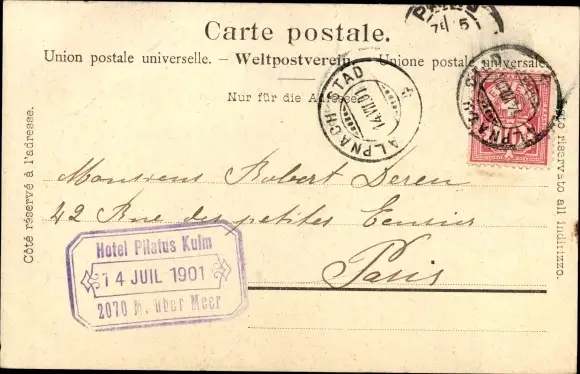 Carte postale.
Union postale universelle. – Weltpostverein. – Unione postale universale
Nur für die Adresse
Côté réservé à l'adresse.
riservato all indirizzo.
ALPNACH-STAD
14.VII.01
ALPNACH STAD
Monsieur Robert Deren
42 Rue des petites Ecuries
Paris
Hotel Pilatus Kulm
14 JUIL 1901
2070 M. über Meer